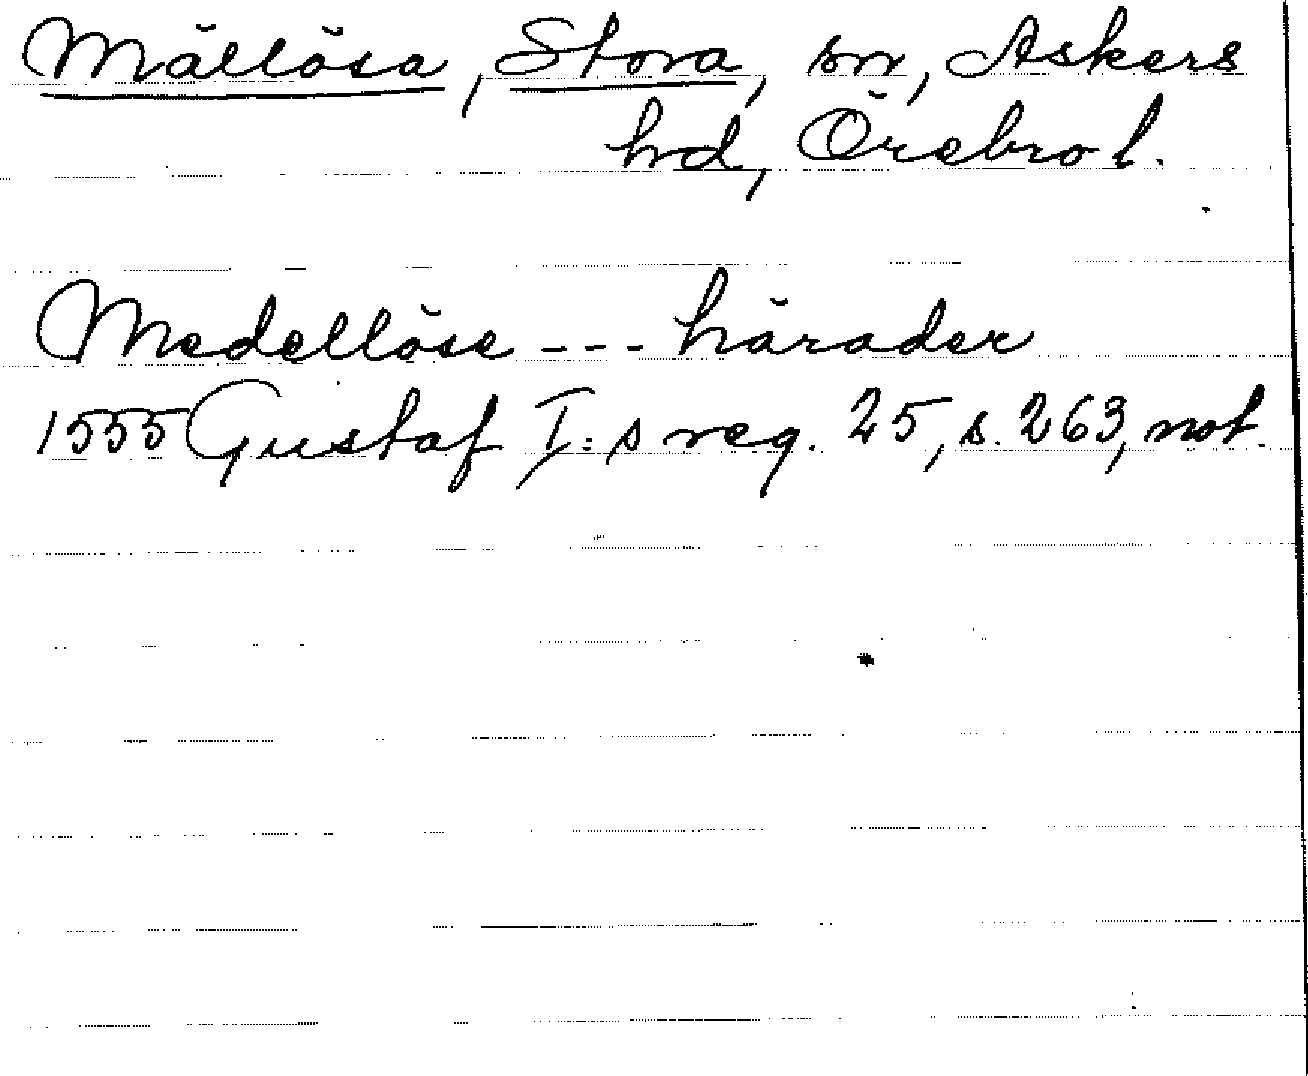 Mällösa, Stora, sn, Askers
hd, Örebro l.
Medellöse --- härader
1555 Gustaf I:s reg. 25, s. 263, not.